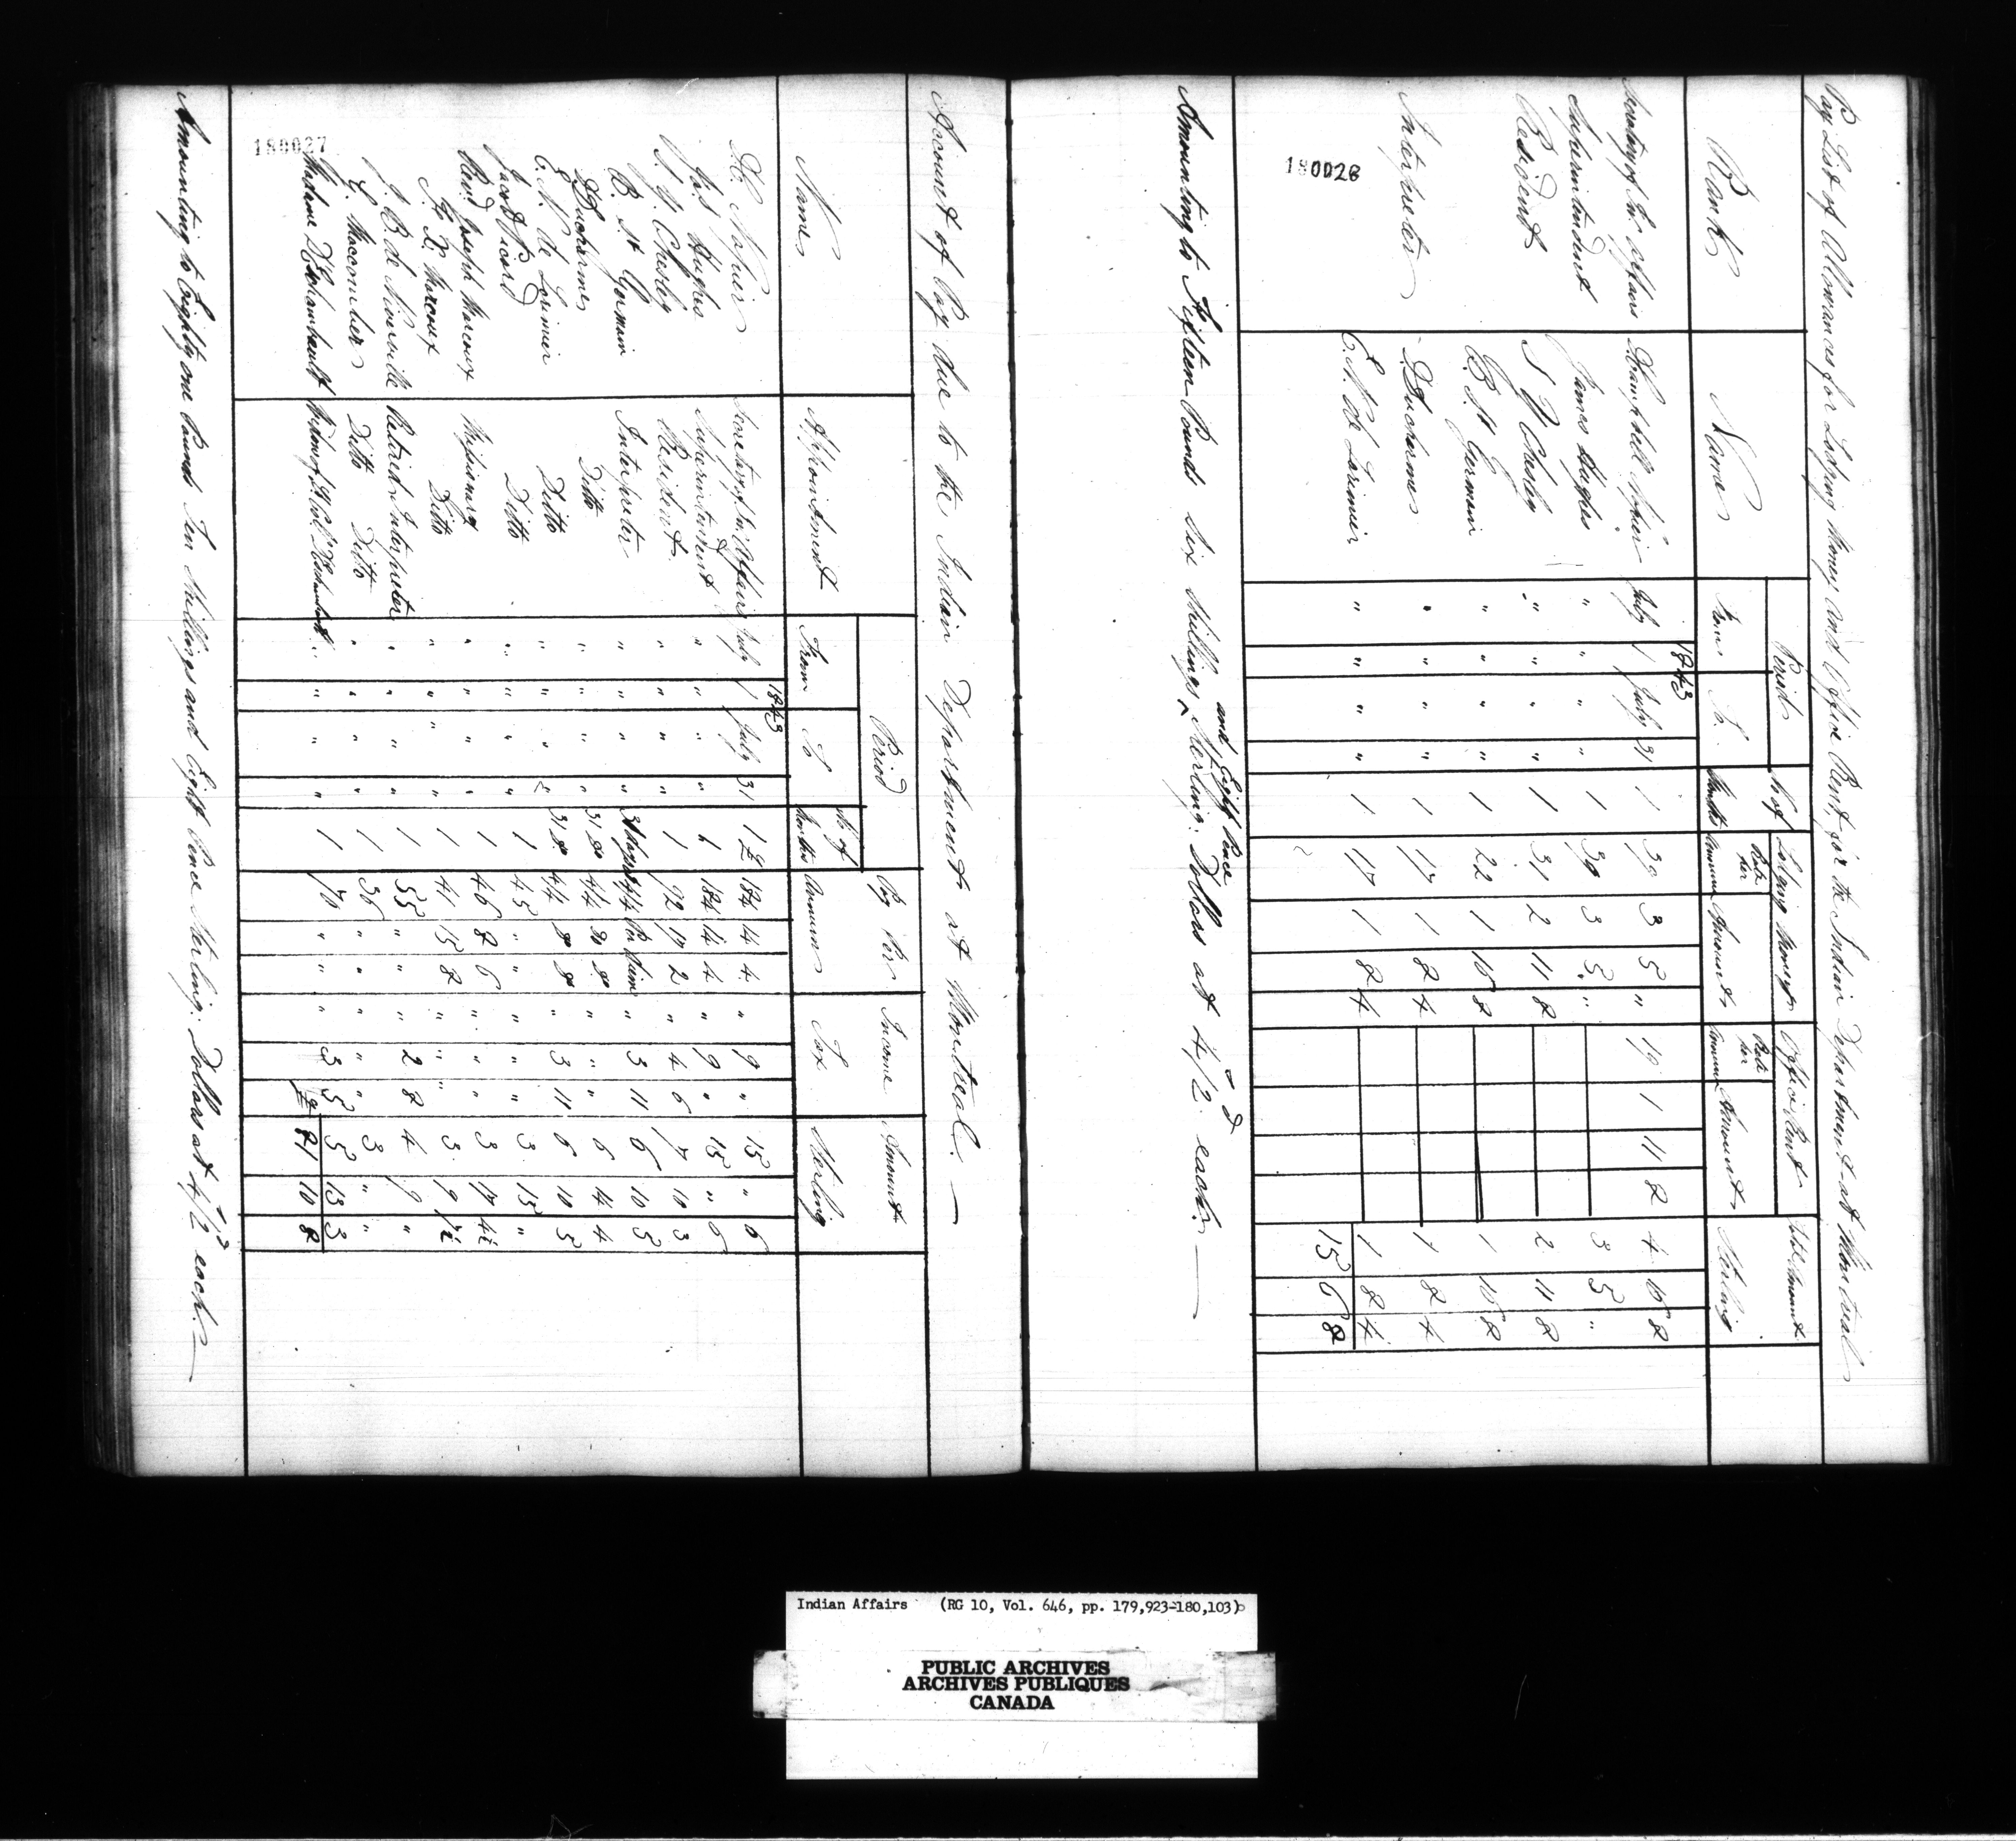 Pay List of Allowances for Lodging Money and Office Rent for the Indian Department at Montreal
Rank Name Period No of Months Lodging Money Office Rent Total Amount Sterling
From To Rate per Annum Amount Rate per Annum Amount
1843
Secretary of In. Affairs D Campbell Napier July 1 July 31 1 39 3 5 " 19 1 11 8 4 16 8
Superintendent James Hughes " " " " 1 39 3 5 " 3 5 "
Resident S Y Chesley " " " " 1 31 2 11 8 2 11 8
B. St Germain " " " " 1 22 1 16 8 1 16 8
Interpreter D. Ducharme " " " " 1 17 1 8 4 1 8 4
E. N. de Lorimier " " " " 1 17 1 8 4 1 8 4
15 6 8
180026
and Eight Pence
Amounting to Fifteen Pounds Six Shillings ^ Sterling: Dollars at 4/2 each.
s d
Account of Pay due to the Indian Department at Montreal.
Name Appointment Period No of Months Pay Per Annum Income Tax Amount Sterling
From To
1843
D. C. Napier Secretary of In. Affairs July 1 July 31 1 £ 184 14 4 " 9 " 15 " 6
Jas Hughes Superintendent " " " " 1 184 14 4 " 9 " 15 " 6
S. Y. Chesley Resident " " " " 1 92 17 2 " 4 6 7 10 3
B. St Germain Interpreter " " " " 31 days 4/4 Per Diem " 3 11 6 10 5
D. Ducharme Ditto " " " " 31 do 4/4 do do " " " 6 14 4
E. N. de Lorimier Ditto " " " " 31 do 4/4 do do " 3 11 6 10 5
Jacob Picard Ditto " " " " 1 45 " " " " " 3 15 "
Revd Joseph Marcoux Missionary " " " " 1 46 8 6 " " " 3 17 4½
F. X. Marcoux Ditto " " " " 1 41 15 8 " " " 3 9 7½
J. B. de Niverville Retired Interpreter " " " " 1 55 " " " 2 8 4 9 "
L. Maccomber Ditto Ditto " " " " 1 36 " " " " " 3 " "
Madame D'Eschambault Widow of Lt Col D'Eschambault " " " " 1 70 " " " 3 5 5 13 3
£ 81 10 8
180027
Amounting to Eighty one Pounds Ten Shillings and Eight Pence Sterling: Dollars at 4/2 each.
s d
Indian Affairs (RG 10, Vol. 646, pp. 179,923-180,103)
PUBLIC ARCHIVES
ARCHIVES PUBLIQUES
CANADA